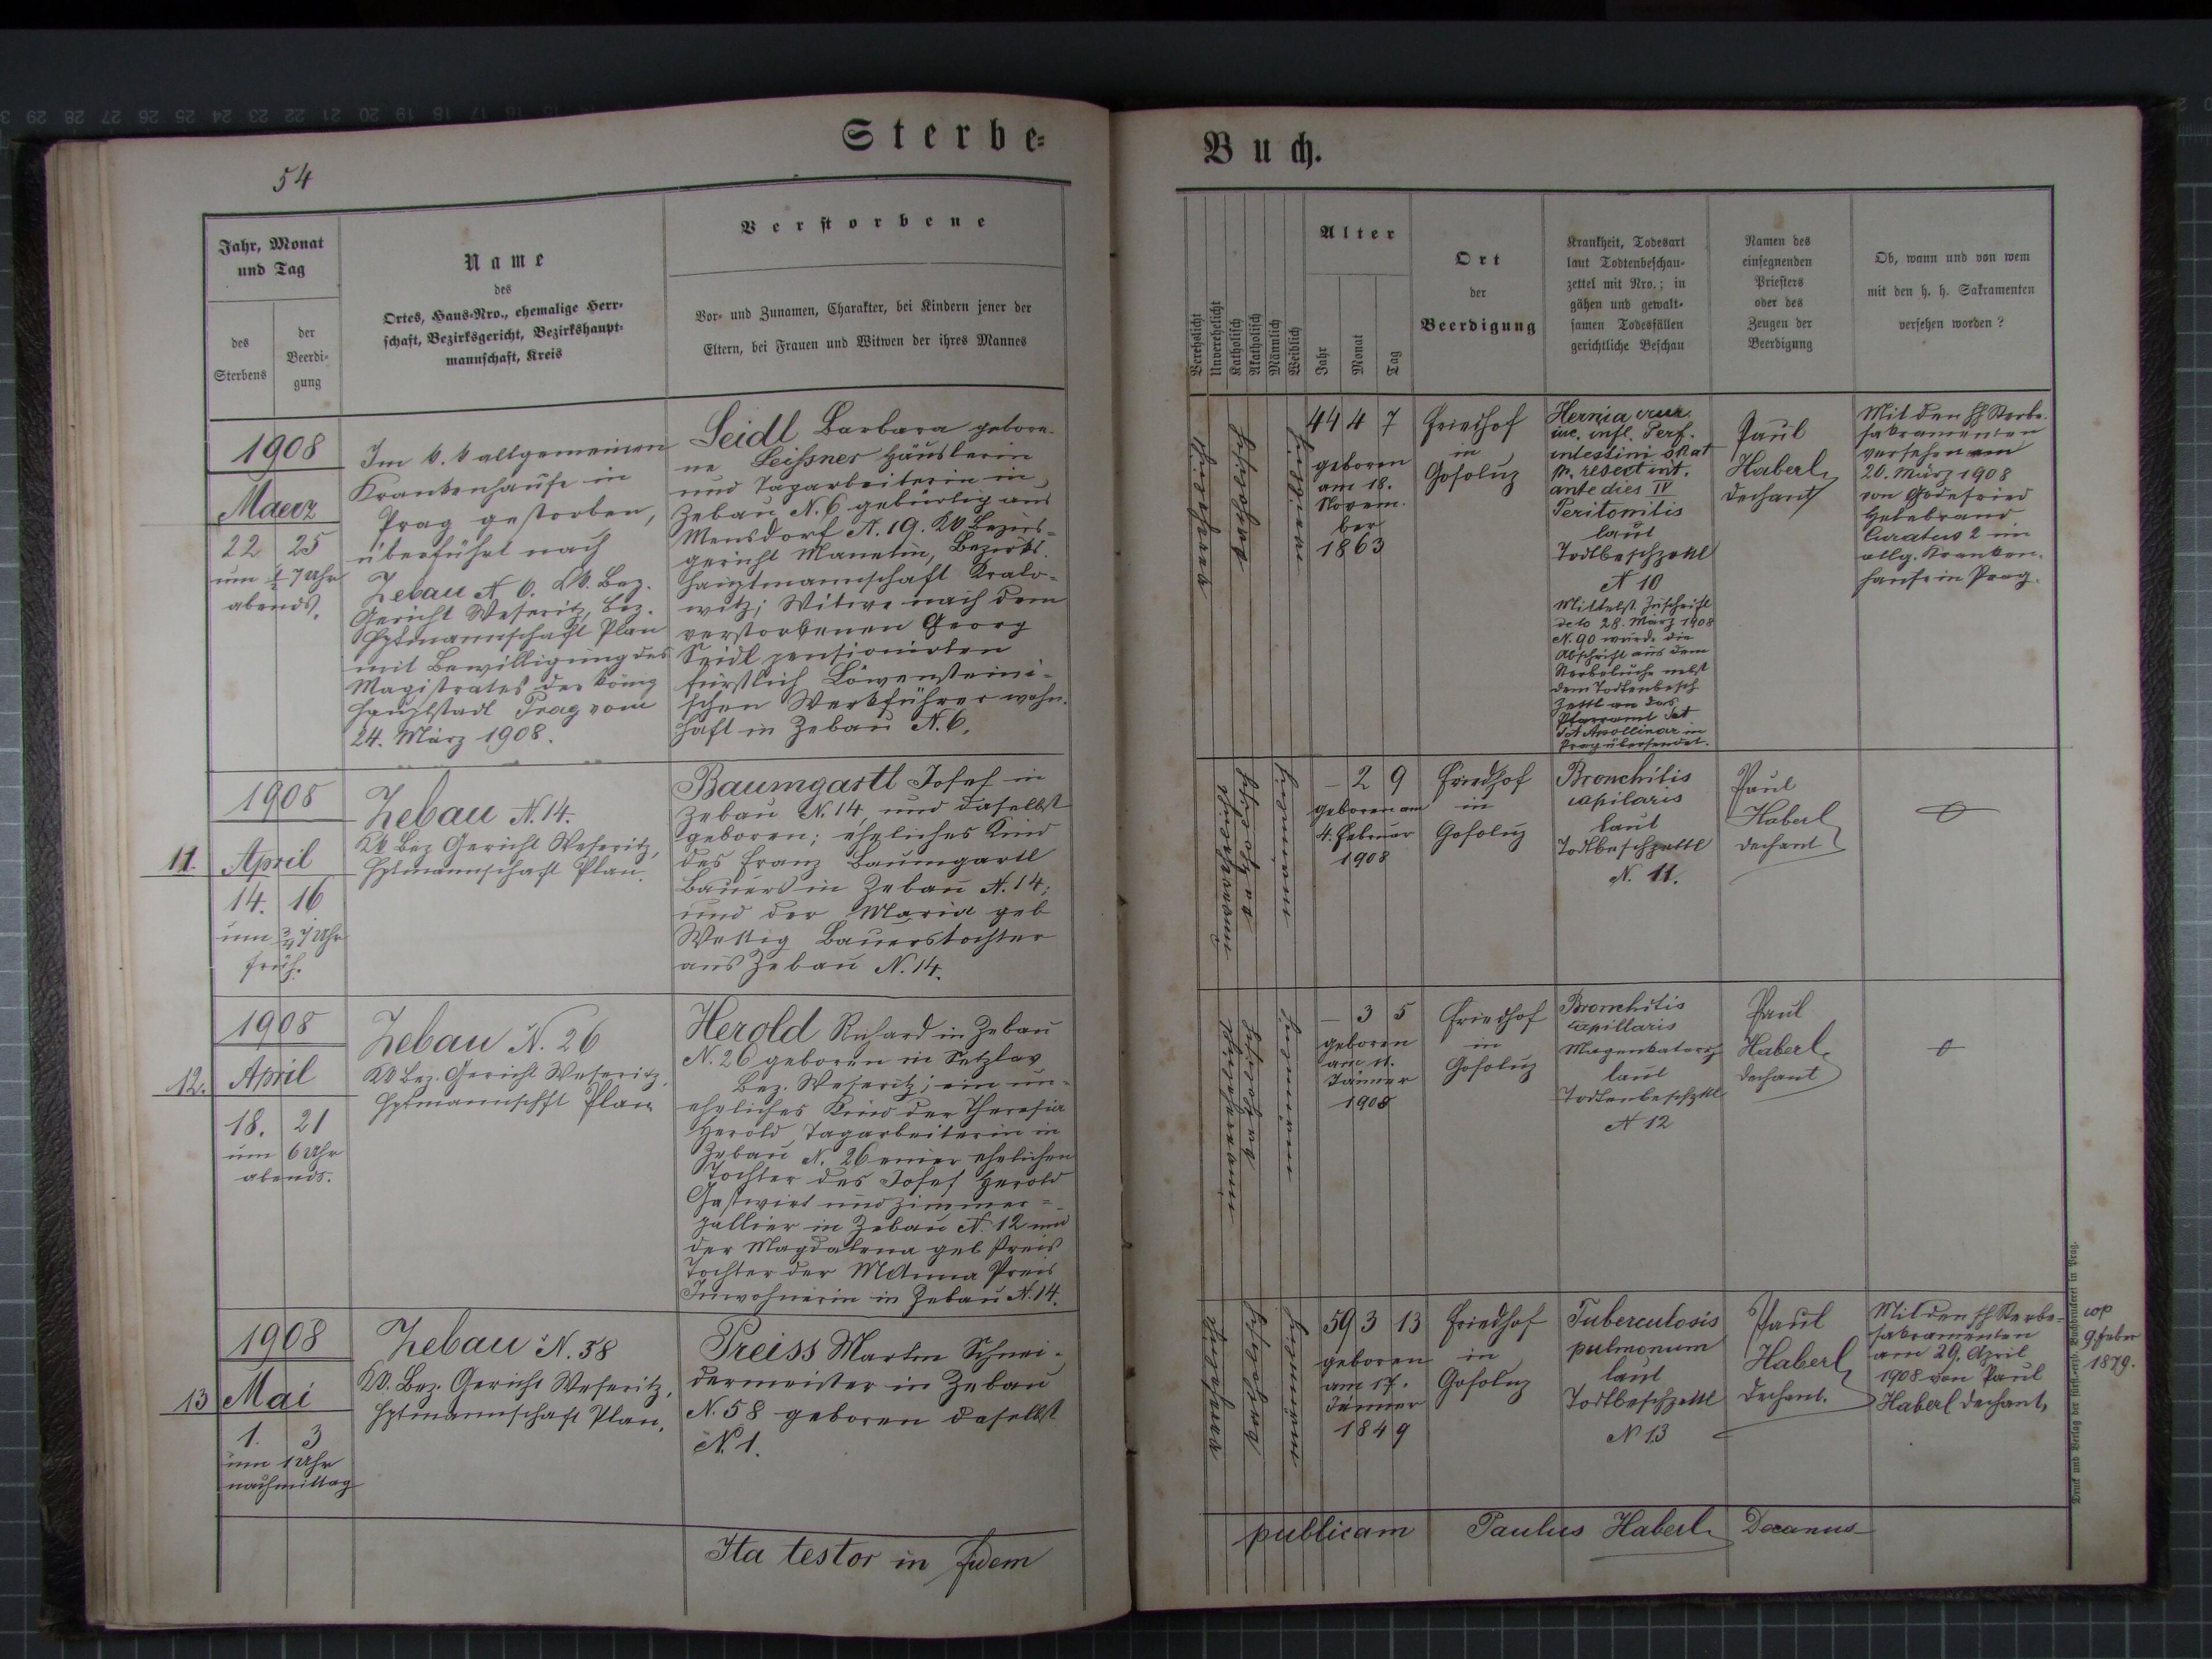 Sterbe-
54
Jahr, Monat
und Tag
des
Sterbens
der
Beerdi-
gung
Name
des
Ortes, Haus-Nro., ehemalige Herr-
schaft, Bezirksgericht, Bezirkshaupt-
mannschaft, Kreis
Verstorbene
Vor- und Zunamen, Charakter, bei Kindern jener der
Eltern, bei Frauen und Witwen der ihres Mannes
1908
Maerz
22 25
um ½ 7 Uhr
abends.
Im k. k allgemeinen
Krankenhause in
Prag gestorben,
überführt nach
Zebau N 6. KK. Bez.
Gericht Weseritz, Bez.
Hptmannschaft Plan
mit Bewilligung des
Magistrates der könig
Hauptstadt Prag vom
24. März 1908.
Seidl Barbara gebore-
ne Leißner Häuslerin
und Tagarbeiterin in
Zebau N. 6 gebürtig aus
Mensdorf N. 19. KK Bezirs-
gericht Manetin, Bezirks.
hauptmannschaft Kralo-
witz; Witwe nach dem
verstorbenen Georg
Seidl pensionirten
fürstlich Löwensteini-
schen Werkführer wohn-
haft in Zebau N. 6.
11.
1908
April
14. 16
um ¾ 7 Uhr
früh.
Zebau N. 14.
KK Bez Gericht Weseritz,
Hptmannschaft Plan.
Baumgartl Josef in
Zebau N. 14, und daselbst
geboren; eheliches Kind
des Franz Baumgartl
Bauers in Zebau N. 14;
und der Maria geb
Wettig Bauerstochter
aus Zebau N. 14.
12.
1908
April
18. 21
um 6 Uhr
abends.
Zebau N. 26
KK Bez. Gericht Weseritz,
Hptmannschft Plan
Herold Richard in Zebau
N. 26 geboren in
Bez. Weseritz; ein un-
eheliches Kind der Theresia
Herold Tagarbeiterin in
Zebau N. 26 einer ehelichen
Tochter des Josef Herold
Gastwirt und Zimmer-
pallier in Zebau N. 12 und
der Magdalena geb Preis
Tochter der MAnna Preis
Inwohnerin in Zebau N. 14.
13
1908
Mai
1. 3
um 1 Uhr
nachmittag
Zebau N. 58
KK. Bez. Gericht Weseritz,
Hptmannschaft Plan.
Preiss Martin Schnei-
dermeister in Zebau
N. 58 geboren daselbst
N. 1.
Ita testor in fidem
Buch.
Verehelicht
Unverehelicht
Katholisch
Akatholisch
Männlich
Weiblich
Alter
Jahr
Monat
Tag
Ort
der
Beerdigung
Krankheit, Todesart
laut Todtenbeschau-
zettel mit Nro.; in
gähen und gewalt-
samen Todesfällen
gerichtliche Beschau
Namen des
einsegnenden
Priesters
oder des
Zeugen der
Beerdigung
Ob, wann und von wem
mit den h. h. Sakramenten
versehen worden?
verehelicht
katholisch
weiblich
44 4 7
geboren
am 18.
Novem-
ber
1863
Friedhof
in
Gosolup
Hernia crur.
inc. Perf.
intestini
p. resect int.
ante dies IV
Peritonitis
laut
Todtbeschzettl
N 10
Mittelst Zuschrift
dcto 28. März 1908
N. 90 wurde die
Abschrift aus dem
Sterbebuche nebst
dem Todtenbesch
Zettl an das
Pfarramt Sct
Apollinar in
Prag übersendet.
Paul
Haberl
Dechant
Mit den hh Sterbe-
sakramenten
versehen am
20. März 1908
von Godefried
Hildebrand
Curatus 2 im
allg. Kranken-
hause in Prag.
unverehelicht
katholisch
männlich
– 2 9
geboren am
4. Februar
1908
Friedhof
in
Gosolup
Bronchitis
capilaris
laut
Todtbeschzettl
N. 11.
Paul
Haberl
Dechant
unverehelicht
katholisch
männlich
– 3 5
geboren
am 11.
Jänner
1908
Friedhof
in
Gosolup
Bronchitis
capillaris
Magenkatarrh
laut
Todtenbeschzttl
N 12
Paul
Haberl
Dechant
verehelicht
katholisch
männlich
59 3 13
geboren
am 17.
Jänner
1849
Friedhof
in
Gosolup
Tuberculosis
pulmonum
laut
Todtbeschzettl
N 13
Paul
Haberl
Dechant.
Mit den hh Sterbe-
sakramenten
am 29. April
1908 von Paul
Haberl Dechant,
cop
9. Feber
1879.
publicam Paulus Haberl Decanus
Druck und Verlag der fürst.-erzb. Buchdruckerei in Prag.